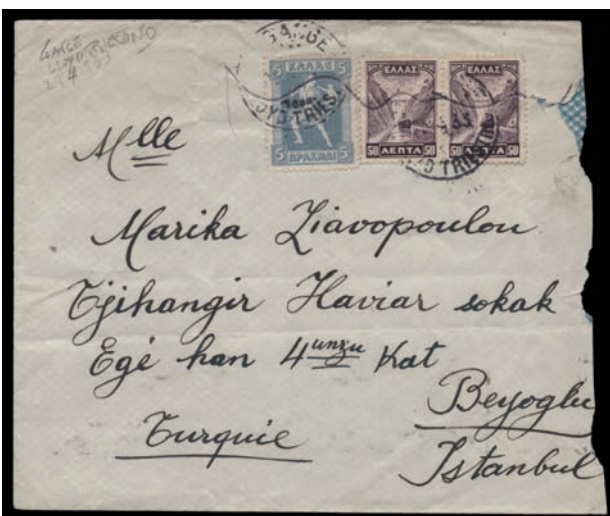 GANGE
LLOYD TRIESTINO
ΕΛΛΑΣ
5 5
5 ΔΡΑΧΜΑΙ 5
ΕΛΛΑΣ
50 ΛΕΠΤΑ 50
ΕΛΛΑΣ
50 ΛΕΠΤΑ 50
GANGE
LOYD TRIES
YD TRIESTIN
Mlle
Marika Ziavopoulou
Djihangir Haviar sokak
Egé han 4 Kat
Beyoglu
Turquie
Istanbul